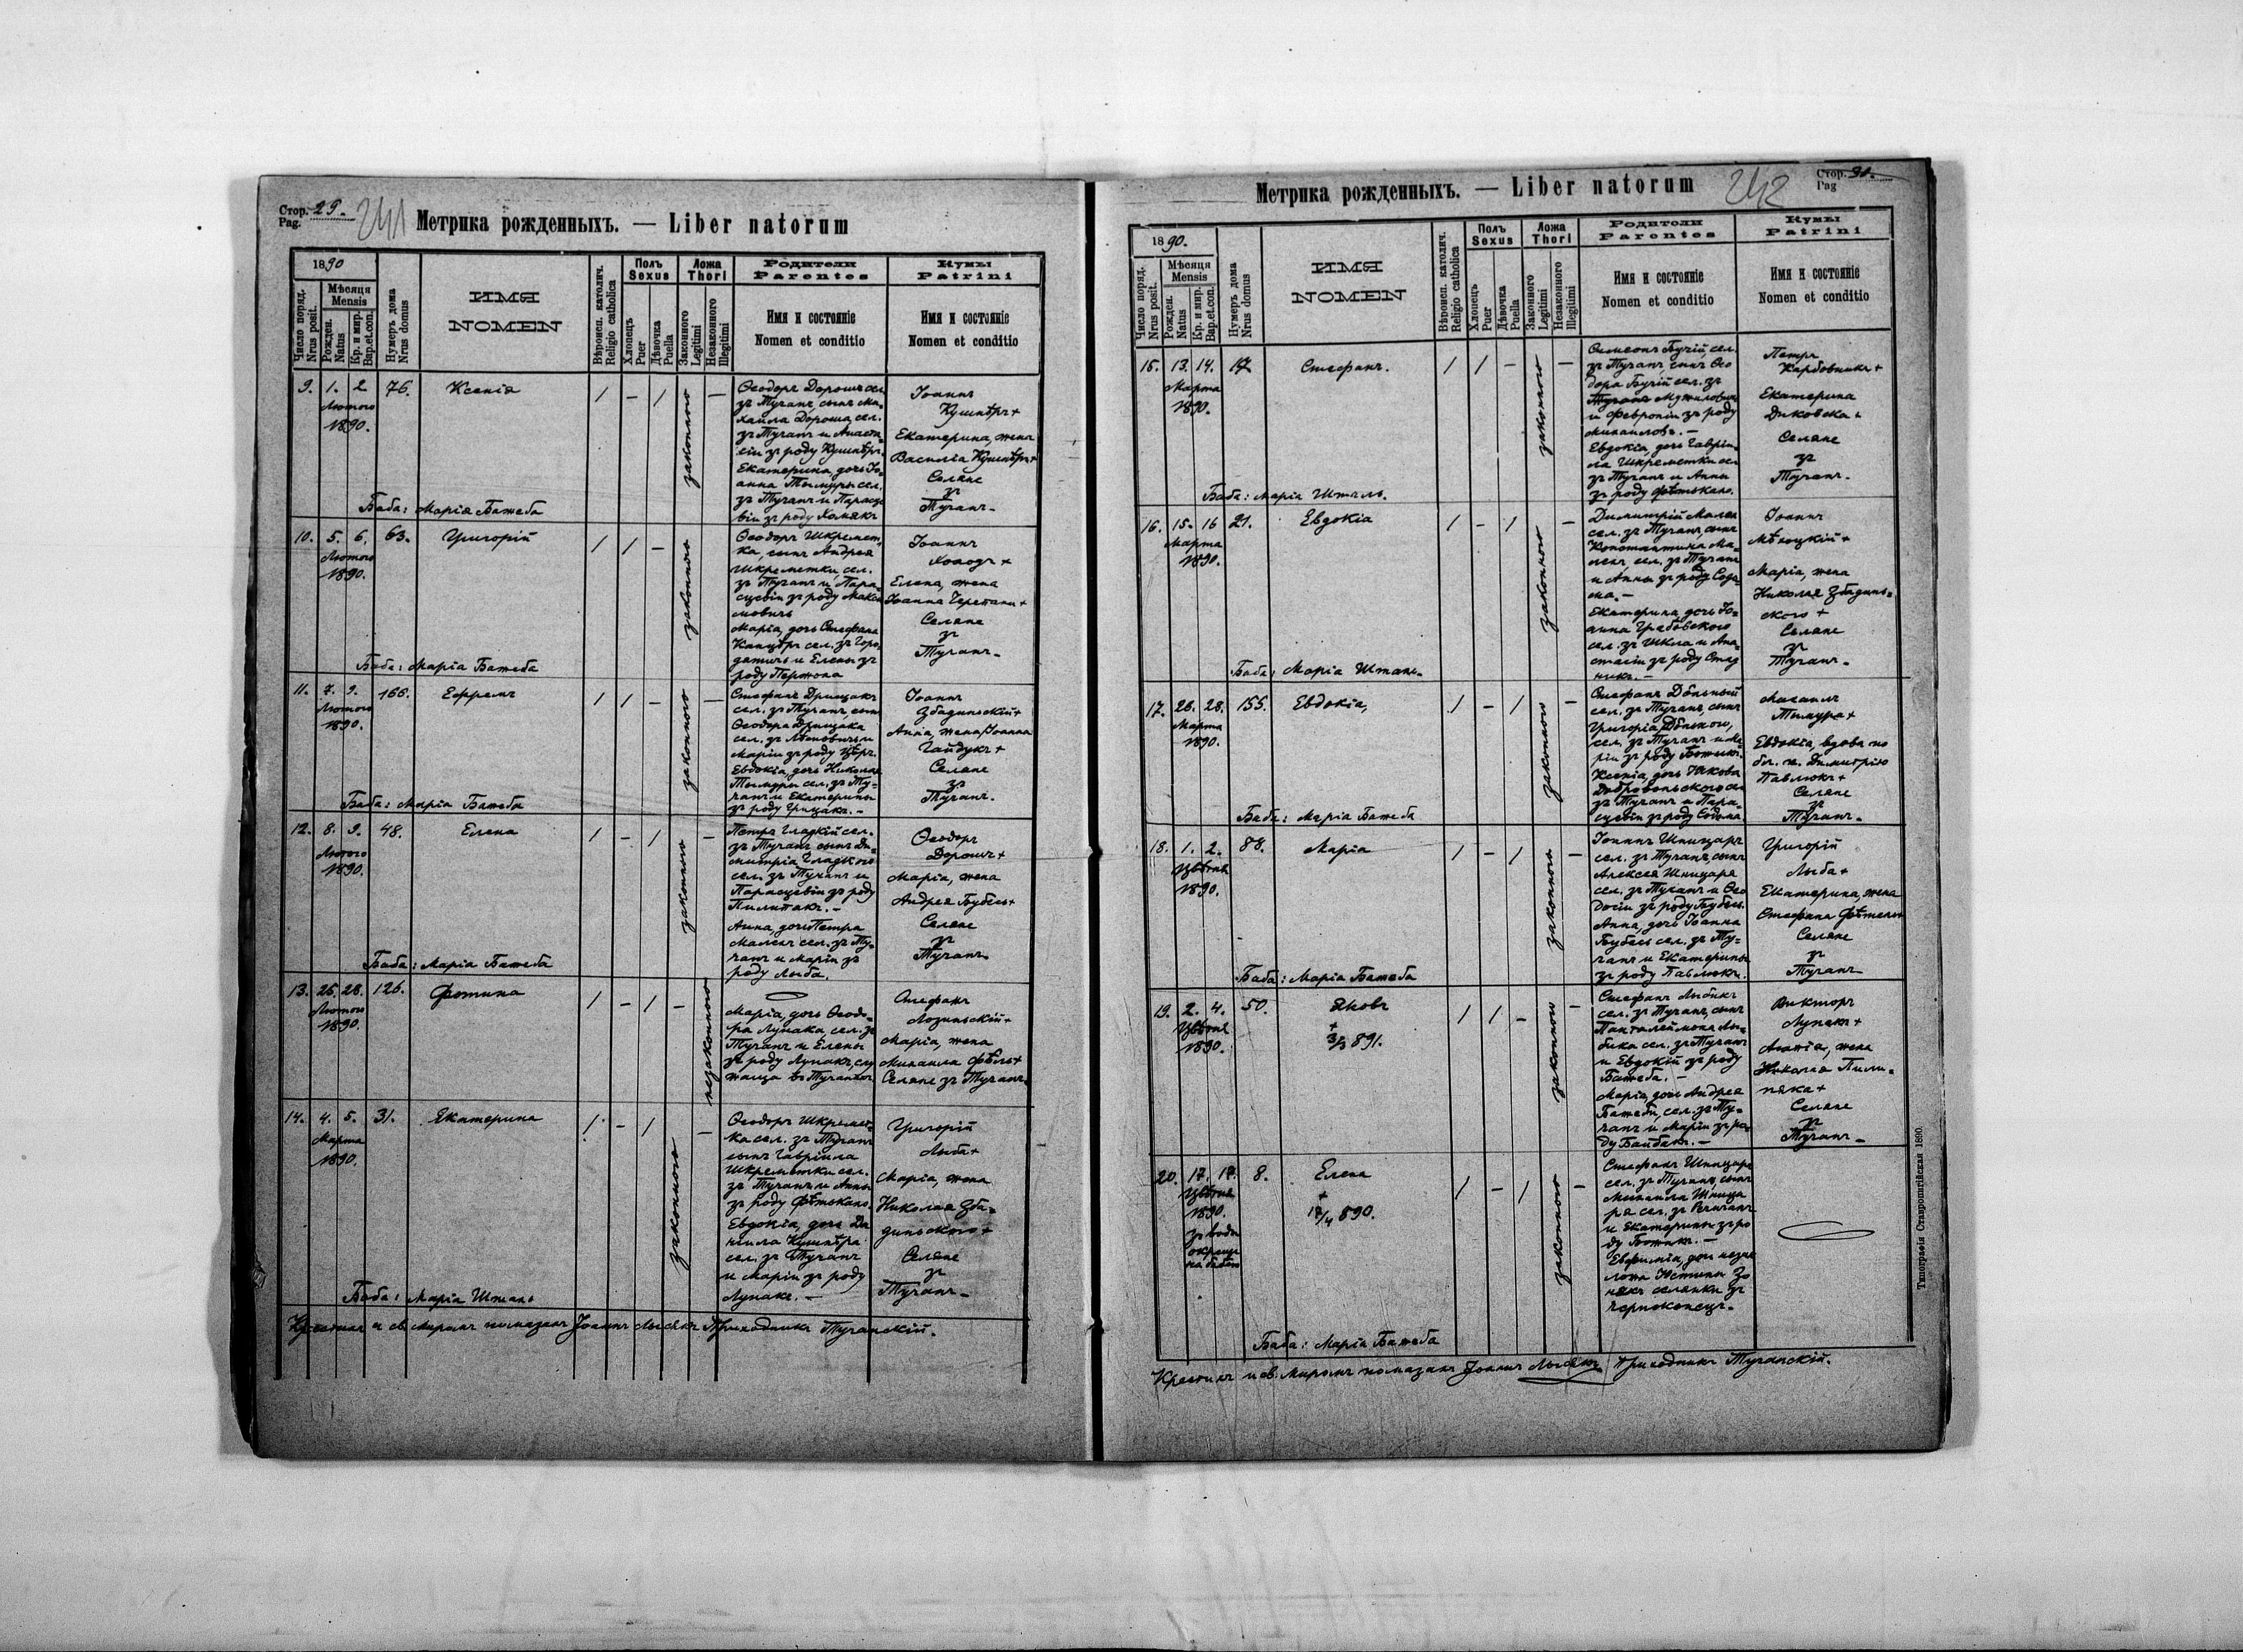 Стор. 29.
Pag.
241
Метрика рожденныхъ. — Liber natorum
1890
Число поряд.
Nrus posit.
Мѣсяця
Mensis
Рожден.
Natus
Кр. и мир.
Bap.et.con.
Нумеръ дома
Nrus domus
ИМЯ
NOMEN
Вѣроисп. католич.
Religio catholica
Полъ
Sexus
Хлопецъ
Puer
Дѣвочка
Puella
Ложа
Thori
Законного
Legitimi
Незаконного
Illegitimi
Родители
Parentes
Имя и состояніе
Nomen et conditio
Кумы
Patrini
Имя и состояніе
Nomen et conditio
9. 1. 2 76. Ксенія / – / законного –
Лютого
1890.
Ѳеодоръ Дорошъ сел.
зъ Тучапъ сынъ Ми-
хаила Дороша, сел.
зъ Тучапъ и Анаста-
сіи зъ роду Кушнѣръ.
Екатерина, дочь Іо-
анна Тымуры сел.
зъ Тучапъ и Параске-
віи зъ роду Хомякъ
Іоаннъ
Кушнѣръ +
Екатерина, жена
Василія Кушнѣръ +
Селяне
зъ
Тучапъ –
Баба: Марія Бажеба
10. 5. 6. 63. Григорій / / – законного
Лютого
1890.
Ѳеодоръ Шкремет-
ка, сынъ Андрея
Шкреметки, сел.
зъ Тучапъ и Пара-
сцевіи зъ роду Макси
мовичъ
Марія, дочь Стефана
сел. зъ Горо-
и Елены зъ
роду
Іоаннъ
Холодъ +
Елена, жена
Іоанна Черепани +
Селяне
зъ
Тучапъ –
Баба: Марія Бажеба
11. 7. 9. 166. Ефремъ / / – законного –
Лютого
1890.
Стефанъ Дрищакъ
сел. зъ Тучапъ, сынъ
Ѳеодора Дрищака
сел. зъ и
Маріи зъ роду
Евдокія, дочь Николая
Тымуры сел. зъ Ту-
чапъ и Екатерины
зъ роду Грицакъ. –
Іоаннъ
Збадинскій +
Анна, жена Іоанна
Гайдукъ +
Селяне
зъ
Тучапъ.
Баба: Марія Бажеба
12. 8. 9. 48. Елена / – / законного –
Лютого
1890.
Петръ Гладкій сел.
зъ Тучапъ сынъ Ди-
митрія Гладкого
сел. зъ Тучапъ и
Парасцевіи зъ роду
Пилипакъ. –
Анна, дочь Петра
Малекъ сел. зъ Ту-
чапъ и Маріи зъ
роду Лыба.
Ѳеодоръ
Дорошъ +
Марія, жена
Андрея Бубесъ +
Селяне
зъ
Тучапъ
Баба: Марія Бажеба
13. 26. 28. 126. Фотина / – / – незаконного
Лютого
1890.
Марія, дочь Ѳеодо-
ра Лупака, сел. зъ
Тучапъ и Елены
зъ роду Лупакъ, слу
жаща въ Тучапахъ
Стефанъ
Лозинскій +
Марія, жена
Михаила Фѣль +
Селяне зъ Тучапъ
14. 4. 5. 31. Екатерина / – / законного –
Марта
1890.
Ѳеодоръ Шкремет-
ка сел. зъ Тучапъ
сынъ Гавріила
Шкреметки сел.
зъ Тучапъ и Анны
зъ роду Фѣтькано.
Евдокія, дочь Да
ніила Кушнѣра
сел. зъ Тучапъ
и Маріи зъ роду
Лупакъ. –
Григорій
Лыба +
Марія, жена
Николая Зба-
динского +
Селяне
зъ
Тучапъ –
Баба: Марія Штань
Крестилъ и св. миромъ помазалъ Іоаннъ Лысякъ Приходникъ Тучапскій.
Метрика рожденныхъ. — Liber natorum
242
Стор. 30.
Pag
1890.
Число поряд.
Nrus posit.
Мѣсяця
Mensis
Рожден.
Natus
Кр. и мир.
Bap.et.con.
Нумеръ дома
Nrus domus
ИМЯ
NOMEN
Вѣроисп. католич.
Religio catholica
Полъ
Sexus
Хлопецъ
Puer
Дѣвочка
Puella
Ложа
Thori
Законного
Legitimi
Незаконного
Illegitimi
Родители
Parentes
Имя и состояніе
Nomen et conditio
Кумы
Patrini
Имя и состояніе
Nomen et conditio
15. 13. 14. 17. Стефанъ. / / – законного –
Марта
1890.
Симеонъ Бучій, сел.
зъ Тучапъ, сынъ Ѳео
дора Бучій сел. зъ
и Февроніи зъ роду
Михаиловъ. –
Евдокія, дочь Гавріи-
ла Шкреметки сел
зъ Тучапъ и Анны
зъ роду Фѣтькано.
Петръ
Карбовникъ +
Екатерина
Диковска +
Селяне
зъ
Тучапъ.
Баба: Марія Штань.
16. 15. 16 21. Евдокія / – / законного –
Марта
1890.
Димитрій Малекъ
сел. зъ Тучапъ, сынъ
Константина Ма-
лекъ, сел. зъ Тучапъ
и Анны зъ роду Содо-
ма. –
Екатерина, дочь Іо-
анна Грабовского
сел. зъ Шкла и Ана
стасіи зъ роду
Іоаннъ
Мѣлюцкій +
Марія, жена
Николая Збадинь-
ского +
Селяне
зъ
Тучапъ –
Баба: Марія Штань.
17. 26. 28. 155. Евдокія, / – / законного –
Марта
1890.
Стефанъ Дольный
сел. зъ Тучапъ, сынъ
Григорія Дольного,
сел. зъ Тучапъ и Ма-
ріи зъ роду Божикъ.
Ксенія, дочь Якова
Добровольского сел
зъ Тучапъ и Пара-
сцевіи зъ роду Содома
Михаилъ
Тымура +
Евдокія, вдова по
бл. п. Димитрію
Павлюкъ +
Селяне
зъ
Тучапъ –
Баба: Марія Бажеба
18. 1. 2. 88. Марія / – / законного –
Цвѣтня
1890.
Іоаннъ Шницаръ
сел. зъ Тучапъ, сынъ
Алексея Шницаря
сел. зъ Тучапъ и Ѳео
досіи зъ роду Бубесъ.
Анна, дочь Іоанна
Бубесъ сел. зъ Ту-
чапъ и Екатерины
зъ роду Павлюкъ.
Григорій
Лыба +
Екатерина, жена
Стефана
Селяне
зъ
Тучапъ
Баба: Марія Бажеба
19. 2. 4. 50. Яковъ / / – законного –
Цвѣтня
1890.
+
3/3 891.
Стефанъ Лыбикъ
сел. зъ Тучапъ, сынъ
Пантелеймона Лы-
бика сел. зъ Тучапъ
и Евдокіи зъ роду
Бажеба. –
Марія, дочь Андрея
Бажебы, сел. зъ Ту-
чапъ и Маріи зъ ро-
ду Байбакъ. –
Викторъ
Лупакъ +
жена
Николая Пили-
пяка +
Селяне
зъ
Тучапъ –
20. 17. 17. 8. Елена / – / законного –
Цвѣтня
1890.
зъ воды
окреще
на бабою
+
17/4 890.
Стефанъ Шницаръ
сел. зъ Тучапъ, сынъ
Михаила Шница
ря сел. зъ
и Екатерины зъ ро
ду Божикъ. –
Евфимія, дочь незак
ложа Юстины
селянки зъ
Баба: Марія Бажеба
Крестилъ и св. миромъ помазалъ Іоаннъ Лысякъ Приходникъ Тучапскій.
Типографія Ставропигійская 1890.